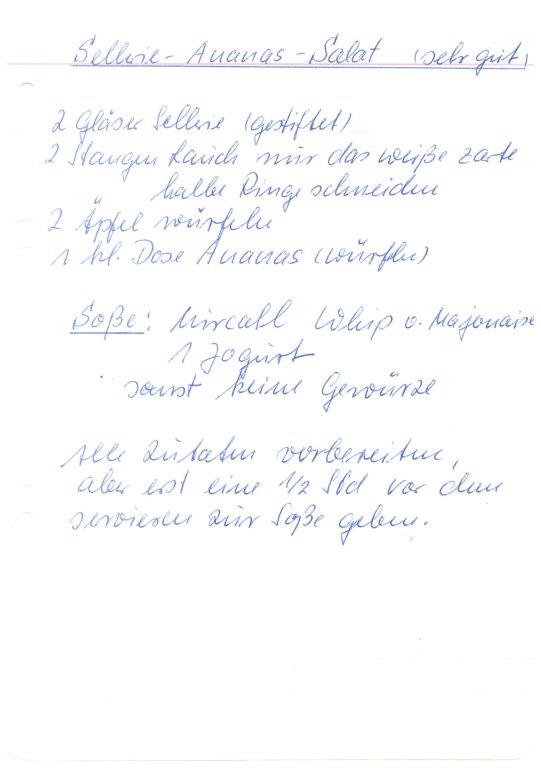 Sellerie-Ananas-Salat (sehr gut)
2 Gläser Sellerie (gestiftet)
2 Stangen Lauch nur das weiße zarte
halbe Ringe schneiden
2 Äpfel würfeln
1 kl. Dose Ananas (würfeln)
Soße: Mircall Whip o. Majonaise
1 Jogurt
sonst keine Gewürze
Alle Zutaten vorbereiten,
aber erst eine 1/2 Std vor dem
servieren zur Soße geben.